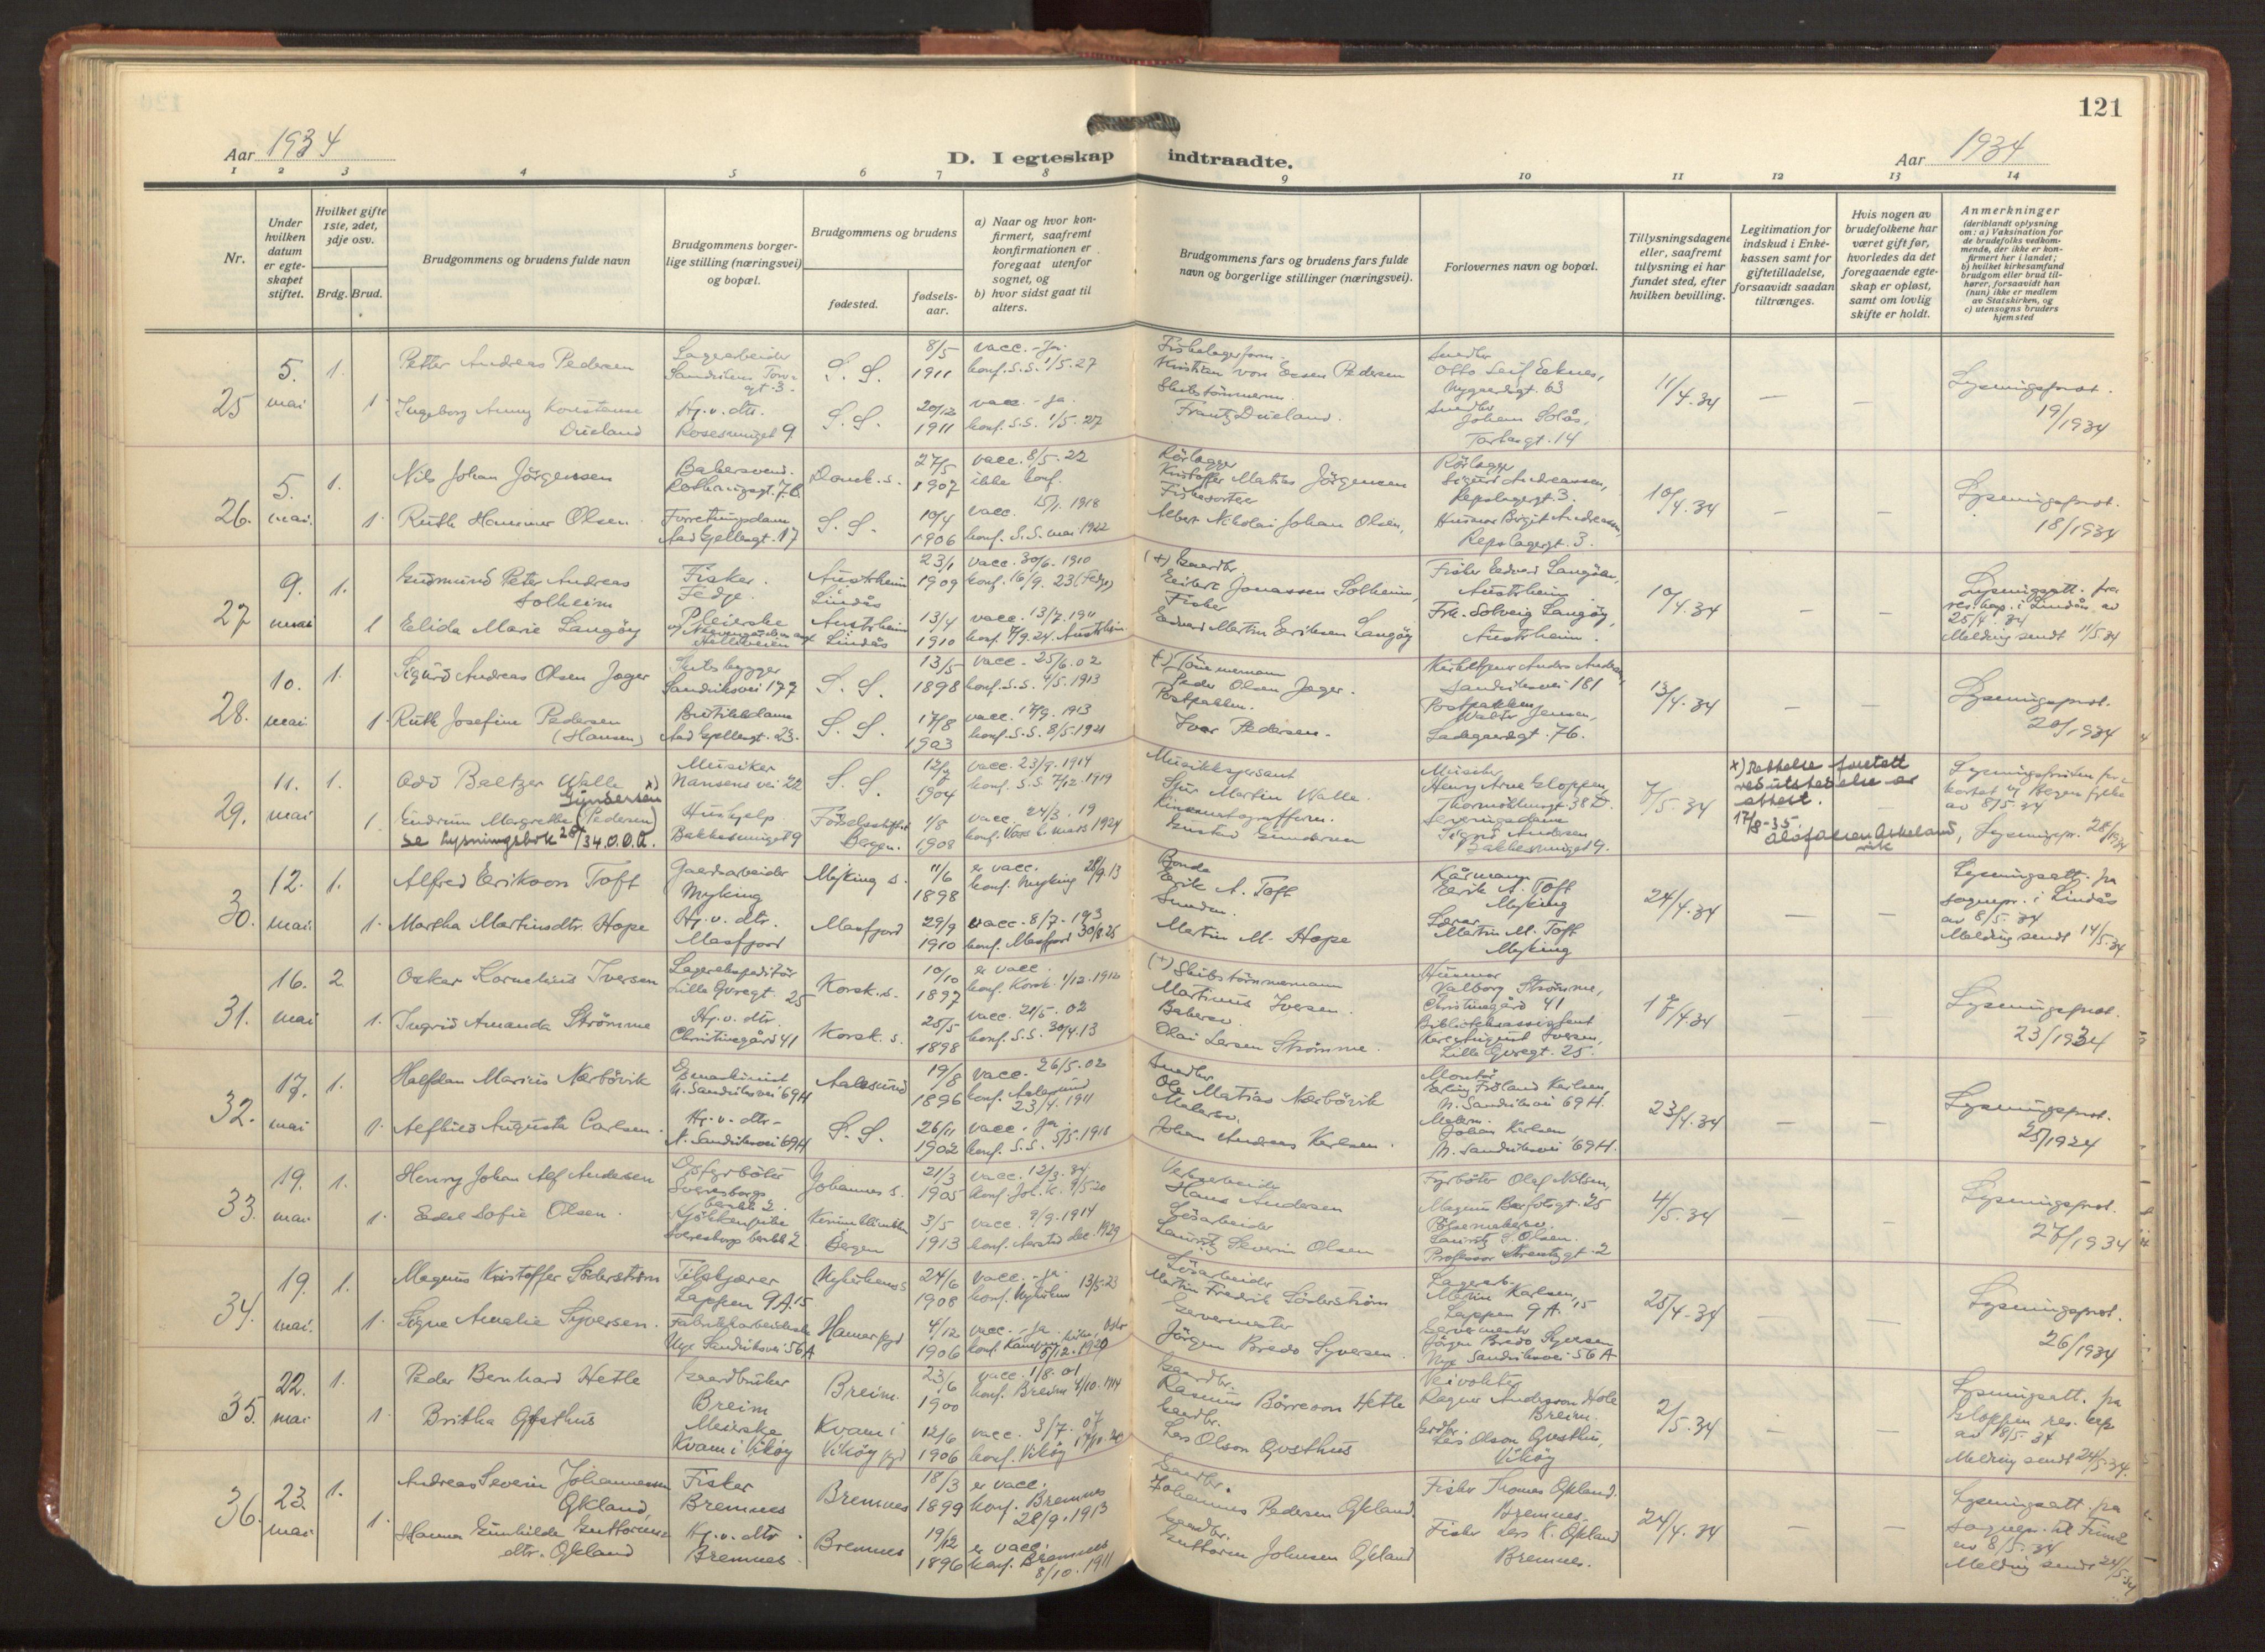 121
Aar 1934
D. I egteskap indtraadte.
Aar 1934
1 2 3 4 5 6 7 8 9 10 11 12 13 14
Nr.
Under hvilken datum er egteskapet stiftet.
Hvilket gifte 1ste, 2det, 3dje osv.
Brdg. Brud.
Brudgommens og brudens fulde navn
Brudgommens borgerlige stilling (næringsvei) og bopæl.
Brudgommens og brudens
fødested.
fødselsaar.
a) Naar og hvor konfirmert, saafremt konfirmationen er foregaat utenfor sognet, og
b) hvor sidst gaat til alters.
Brudgommens fars og brudens fars fulde navn og borgerlige stillinger (næringsvei).
Forlovernes navn og bopæl.
Tillysningsdagene eller, saafremt tillysning ei har fundet sted, efter hvilken bevilling.
Legitimation for indskud i Enkekassen samt for giftetilladelse, forsaavidt saadan tiltrænges.
Hvis nogen av brudefolkene har været gift før, hvorledes da det foregaaende egteskap er opløst, samt om lovlig skifte er holdt.
Anmerkninger
(deriblandt oplysning om: a) Vaksination for de brudefolks vedkommende, der ikke er konfirmert her i landet;
b) hvilket kirkesamfund brudgom eller brud tilhører, forsaavidt han (hun) ikke er medlem av Statskirken, og
c) utensogns bruders hjemsted
25 5. mai 1. Petter Andreas Pedersen Lagerarbeider S. S. 8/5 1911 vacc. - ja. konf. S.S. 1/5.27
Kristian von Essen Pedersen
Otto Leif Eknes, Nygaardsgt. 63
11/4.34 Lysningsprot. 19/1934
1 Ingeborg Anny Konstanse Dueland Hj.v. dtr. Rosesmuget 9 S.S. 20/12 1911 vacc. - ja konf. S.S. 1/5.27
Skibstømmerm. Frantz Dueland.
Snedker Johan Solås, Torbgt. 14
26. 5. mai. 1. Nils Johan Jörgensen Bakersvend. Domk. s. 27/5 1907 vacc. 8/5.22 ikke konf.
Rörlegger Kristoffer Matias Jörgensen
Rörlegger Sigurd Andreassen, Repslagergt. 3.
10/4.34 Lysningsprot. 18/1934
1. Ruth Hammer Olsen Forretningsdame S. S. 10/4 1906 vacc. 15/1.1918 konf. S.S. mai 1922
Albert Nikolai Johan Olsen,
Husmor Birgit Andreassen, Repslagergt. 3.
27 9. mai 1. Gudmund Peter Andreas Solheim Fisker. Fedje. Austrheim Lindås 23/1 1909 vacc. 30/6.1910 konf. 16/9.23 (Fedje)
(+) Gaardbr. Jonassen Solheim,
Fisker Edvard Langöy, Austrheim
10/4.34 Lysningsatt. fra res. kap. i Lindås av 25/4.34 Melding sendt 11/5 34
1 Elida Marie Langöy Pleierske Austrheim Lindås 13/4 1910 vacc. 13/7.1911 konf. 7/9.24. Austrheim.
Fisker Edvard Martin Eriksen Langöy
Frk. Solveig Langöy, Austrheim.
28. 10. mai 1. Sigurd Andreas Olsen Jæger Sandviksvei 177 S. S. 13/5 1898 vacc. 25/6.02 konf. S.S. 4/5.1913
(+) Tömmermann Peder Olsen Jæger.
Sandviksvei 181
13/4.34 Lysningsprot. 20/1934
1. Ruth Josefine Pedersen (Hansen) Butikkdame S. S. 17/8 1903 vacc. 17/9.1913 konf. S.S. 8/5.1921
Postpakkm. Ivar Pedersen.
Postpakkm. Walter Jensen, Ladegaardsgt. 76.
29. 11. mai 1. Odd Baltzer Walle Musiker Nansens vei 22 S. S. 12/7 1904 vacc. 23/9.1914 konf. S.S. 7/12.1919
Musikksersjant Martin Walle.
Musiker Henry Arne Gloppen, Thormöhlensgt. 38 D.
7/5.34
x) Rettelse foretatt ved utstedelse av attest. 17/8-35.
1. Gudrun Margrethe (Pedersen) x) Gundersen Hushjelp Bakkesmuget 9 Födselsstiftels. Bergen. 1/8 1908 vacc. 24/3.19 konf. Voss k. mars 1924
se Lysningsbok 28/34. O.O.A.
Kinematografförer. Gustav Gundersen
Serveringsdame Sigrid Andersen Bakkesmuget 9.
Lysningspr. 28/1934
30. 12. mai. 1. Alfred Erikson Toft Gaardsarbeider Myking Myking s. 11/6 1898 er vacc. konf. Myking 28/9.13
Bonde Erik A. Toft
Kårmann Eerik A. Toft Myking
24/4.34 Lysningsatt. fra sognepr. i Lindås av 8/5.34 Melding sendt 14/5.34
1. Martha Martinsdtr. Hope Hj.v. dtr. Masfjord Masfjord 29/9 1910 vacc. 8/7.193 konf. Masfjord 30/8.25
Martin M. Hope
Lærer Martin M. Toft Myking
31. 16. mai 2. Oskar Kornelius Iversen Lagerekspeditör Lille Övregt. 25 Korsk. s. 10/10 1897 er vacc. konf. Korsk. 1/12.1912
(+) Skibstømmermann Martinus Iversen.
Husmor Valborg Strømme, Christinegård 41
17/4.34 Lysningsprot. 23/1934
1. Ingrid Amanda Strømme Hj.v. dtr. Christinegård 41 Korsk. s. 25/5 1898 vacc. 21/5.02 konf. S.S. 30/4.13
Olai Larsen Strømme.
Biblioteksassistent Kare August Iversen, Lille Övregt. 25.
32. 17. mai 1. Halfdan Marius Nærbövik N. Sandviksvei 69 H Aalesund 19/8 1896 vacc. 26/5.02 konf. Aalesund 23/4.1911
Snedker Ole Matias Nærbövik
Montör Erling Fröland Karlsen, N. Sandviksvei 69 H.
23/4.34 Lysningsprot. 25/1934
1. Alfhild Augusta Carlsen. Hj.v. dtr. N. Sandviksvei 69 H S. S. 26/11 1902 vacc. ja. konf. S.S. 5/5.1918
Johan Andreas Karlsen.
Johan Karlsen N. Sandviksvei 69 H.
33. 19. mai 1. Henry Johan Alf Andersen Johannes s. 21/3 1905 vacc. 12/3.34 konf. Joh. k. 9/5.20
Hans Andersen
Fyrböter Olaf Nilsen, Magnus Barfotsgt. 25
4/5.34 Lysningsprot. 27/1934
1. Edel Sofie Olsen. Kjökkenpike Bergen 3/5 1913 vacc. 9/9.1914 konf. Aarstad des. 1929
Lösarbeider Lauritz Severin Olsen
Lauritz S. Olsen.
34. 19. mai. 1. Magnus Kristoffer Söderström Tilskjærer Lappen 9A.15 24/6 1908 vacc. - ja. 13/5.23
Lösarbeider Martin Fredrik Söderström
Martin Karlsen, Lappen 9 A. 15
25/4.34 Lysningsprot. 26/1934
1. Signe Amalie Syversen. Fabrikkarbeiderske Nye Sandviksvei 56 A Hamar pgd 4/12 1906 vacc. - ja konf. Kampen kirke, Oslo 5/12.1920
Garvermester Jörgen Bredo Syversen.
Garvermestr. Jörgen Bredo Syversen Nye Sandviksvei 56 A
35. 22. mai 1. Peder Bernhard Hetle Gaardbruker Breim Breim. 23/6 1900 vacc. 1/8.01 konf. Breim 4/10.1914
Gaardbr. Rasmus Börreson Hetle
Veivokter Ragnar Anderson Hole Breim.
2/5.34 Lysningsatt. fra Gloppen res. kap. av 18/5.34 Melding sendt 24/5.34.
1 Britha Gjøsthus Meierske Kvam i Vikøy Kvam i Vikøy pgd 12/6 1906 vacc. 3/7.07 konf. Vikøy
Gaardbr. Lars Olson
Lars Olson Vikøy
36. 23. mai 1. Andreas Severin Johannessen Økland Fisker Bremnes Bremnes 18/3 1899 er vacc. konf. Bremnes 28/9.1913
Gaardbr. Johannes Pedersen Økland.
Fisker Thomas Økland. Bremnes.
24/4.34 Lysningsatt. fra sognepr. til Finnås av 8/5.34 Melding sendt 24/5.34
1. Hanna Gunhilde Guttormsdtr. Økland Hj.v. dtr. Bremnes. Bremnes 19/12 1896 er vacc. konf. Bremnes 8/10.1911
Gaardbr. Guttorm Johnsen Økland
Fisker Lars K. Økland Bremnes.